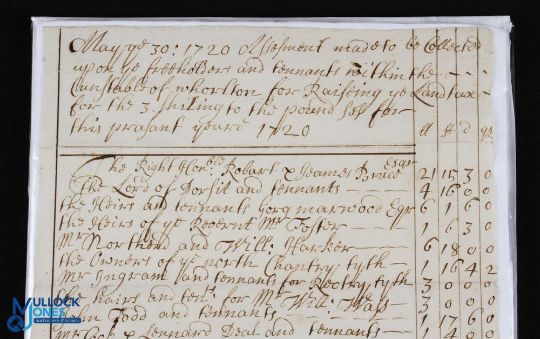 May ye 30: 1720 Assesment made to be Collected
upon ye freeholders and tennants within the
Cunstable of whorlton for Raiseing ye Land tax
for the 3 shiling to the pound for
this prasant yeare 1720
The Right Honble Robart & Jeames Bruce Esqr 21 15 3 0
The Lord of Dorsit and tennants 4 16 0 0
the Heirs and tennants Gorg marwood Eqr 6 1 6 0
the Heirs of ye Revernt Mr Foster 1 6 3 0
Mr Northend and Will: Harker 6 18 0 0
the Owners of ye north Chantry tyth 1 16 4 2
Mr Ingram and tennants for Rectry tyth 3 0 0 0
the hairs and ten: for Mr Will: Wass 3 0 0 0
Todd and tennants 1 17 6 0
& Lennard Deal and tennants 1 4 0 0
MULLOCK
JONES